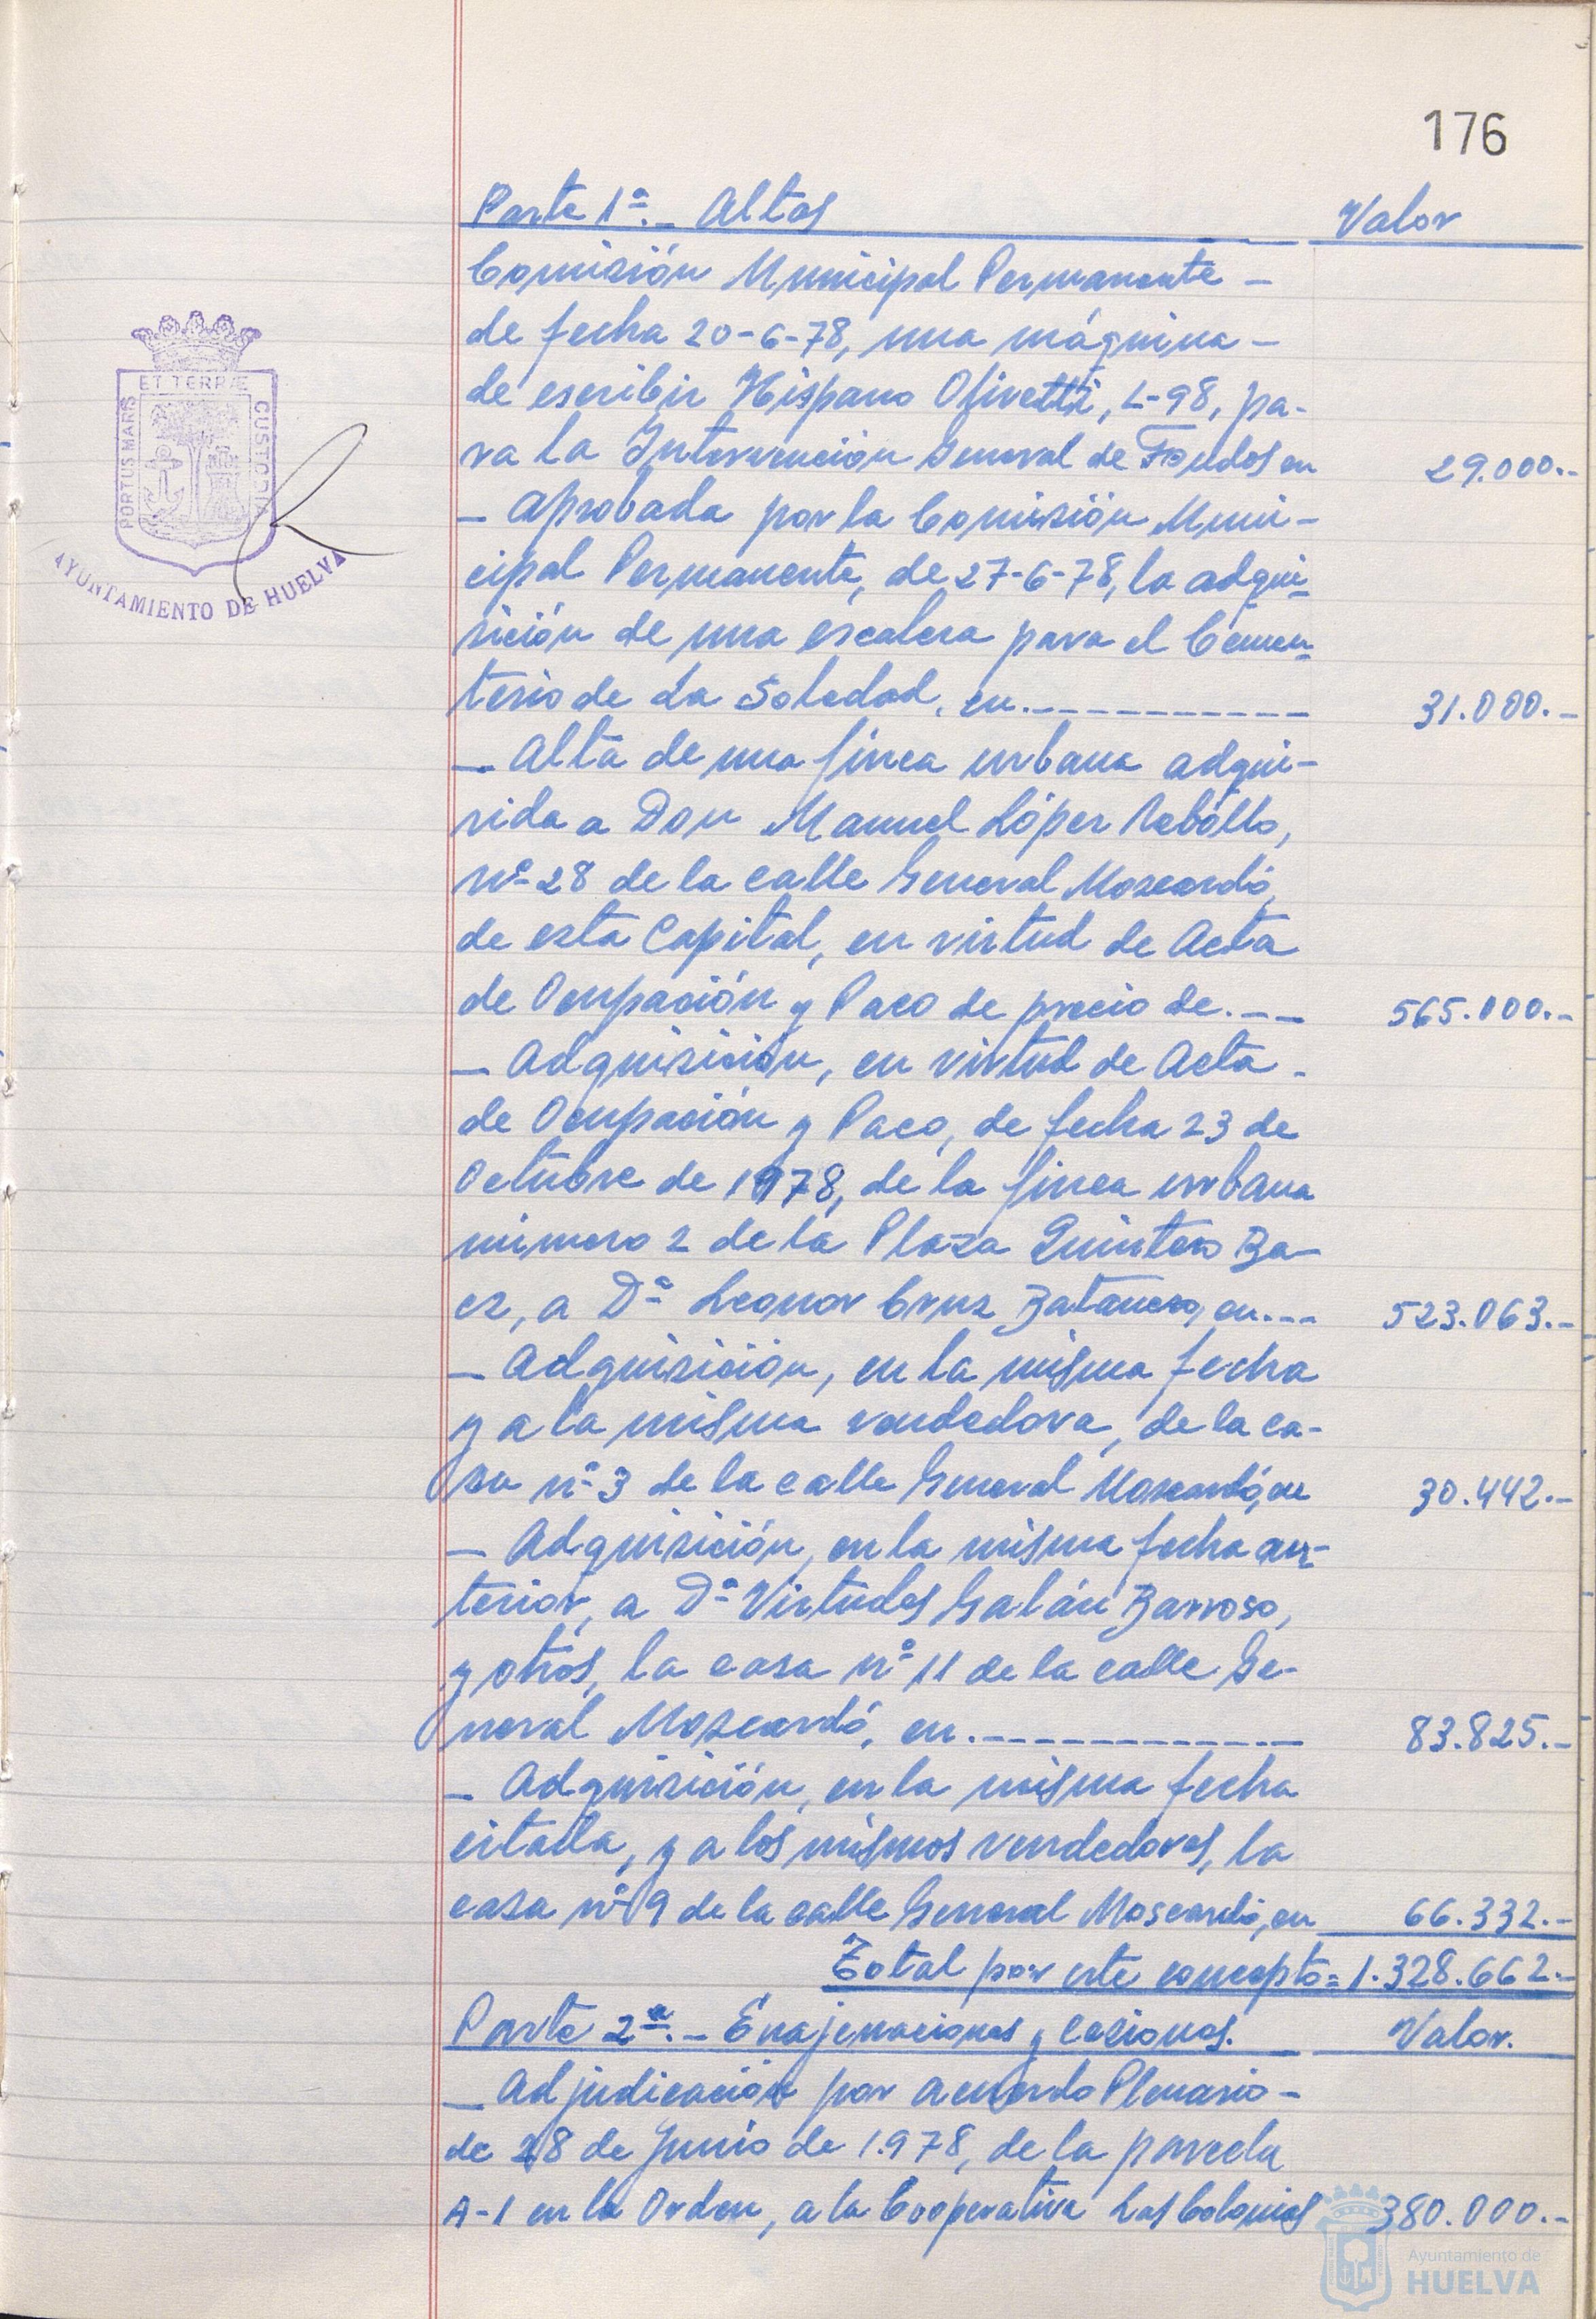 176
Parte 1ª.- Altas Valor
Comisión Municipal Permanente -
de fecha 20-6-78, una máquina -
de escribir Hispano Olivetti, L-98, pa-
ra la Intervención General de Fondos en 29.000.-
- Aprobada por la Comisión Muni-
cipal Permanente, de 27-6-78, la adqui-
sición de una escalera para el Cemen-
terio de La Soledad, en.---------- 31.000.-
- Alta de una finca urbana adqui-
rida a Don Manuel López Rebollo,
nº 28 de la calle General Moscardó,
de esta Capital, en virtud de Acta
de Ocupación y Paco de precio de.--- 565.000.-
- Adquisición, en virtud de Acta -
de Ocupación y Paco, de fecha 23 de
Octubre de 1978, de la finca urbana
número 2 de la Plaza Quintero Ba-
ez, a Dª Leonor Cruz Batanero, en.--- 523.063.-
- Adquisición, en la misma fecha
y a la misma vendedora, de la ca-
sa nº 3 de la calle General Moscardó, en 30.442.-
- Adquisición, en la misma fecha an-
terior, a Dª Virtudes Galán Barroso,
y otros, la casa nº 11 de la calle Ge-
neral Moscardó, en.------------- 83.825.-
- Adquisición, en la misma fecha
citada, y a los mismos vendedores, la
casa nº 9 de la calle General Moscardó, en 66.332.-
Total por este concepto= 1.328.662.-
Parte 2ª.- Enajenaciones y cesiones. Valor.
- Adjudicación por acuerdo Plenario -
de 28 de Junio de 1.978, de la parcela
A-1 en la Orden, a la Cooperativa Las Colonias 380.000.-
PORTUS MARIS ET TERRÆ CUSTODIA
AYUNTAMIENTO DE HUELVA
Ayuntamiento de
HUELVA